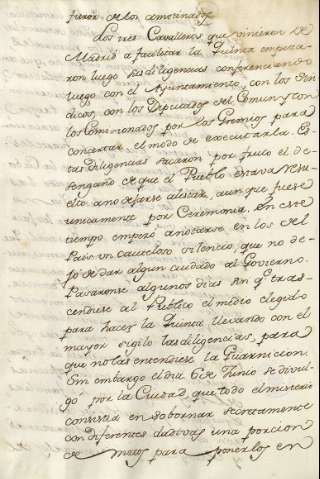 fueron de los amotinados.
dos tres Cavalleros que vinieron de
Madrid a facilitar la Quinta empeza-
ron luego las diligencias conferenciando
luego con el Ayuntamiento, con los Sin-
dicos, con los Diputados del Comun, y con
los Comisionados por los Gremios para
concertar el modo de executarla. Es-
tas diligencias sacaron por fruto el de-
sengaño de que el Pueblo estava resu-
elto a no dejarse alistar, aun que fuese
unicamente por Ceremonia. En este
tiempo empezó a notarse en los del
Pais un cauteloso silencio, que no de-
jó de dar algun cuidado al Govierno.
Pasaronse algunos dias sin qe tras-
cendiese al Publico el medio elegido
para hacer la Quinta llevando con el
mayor sigilo las diligencias, para
que no las entendiese la Guarnicion.
Sin embargo el dia 6 de Junio se divul-
gó por la Ciudad, que todo el misterio
consistia en sobornar secretamente
con diferentes dadivas una porcion
de mozos para ponerlos en